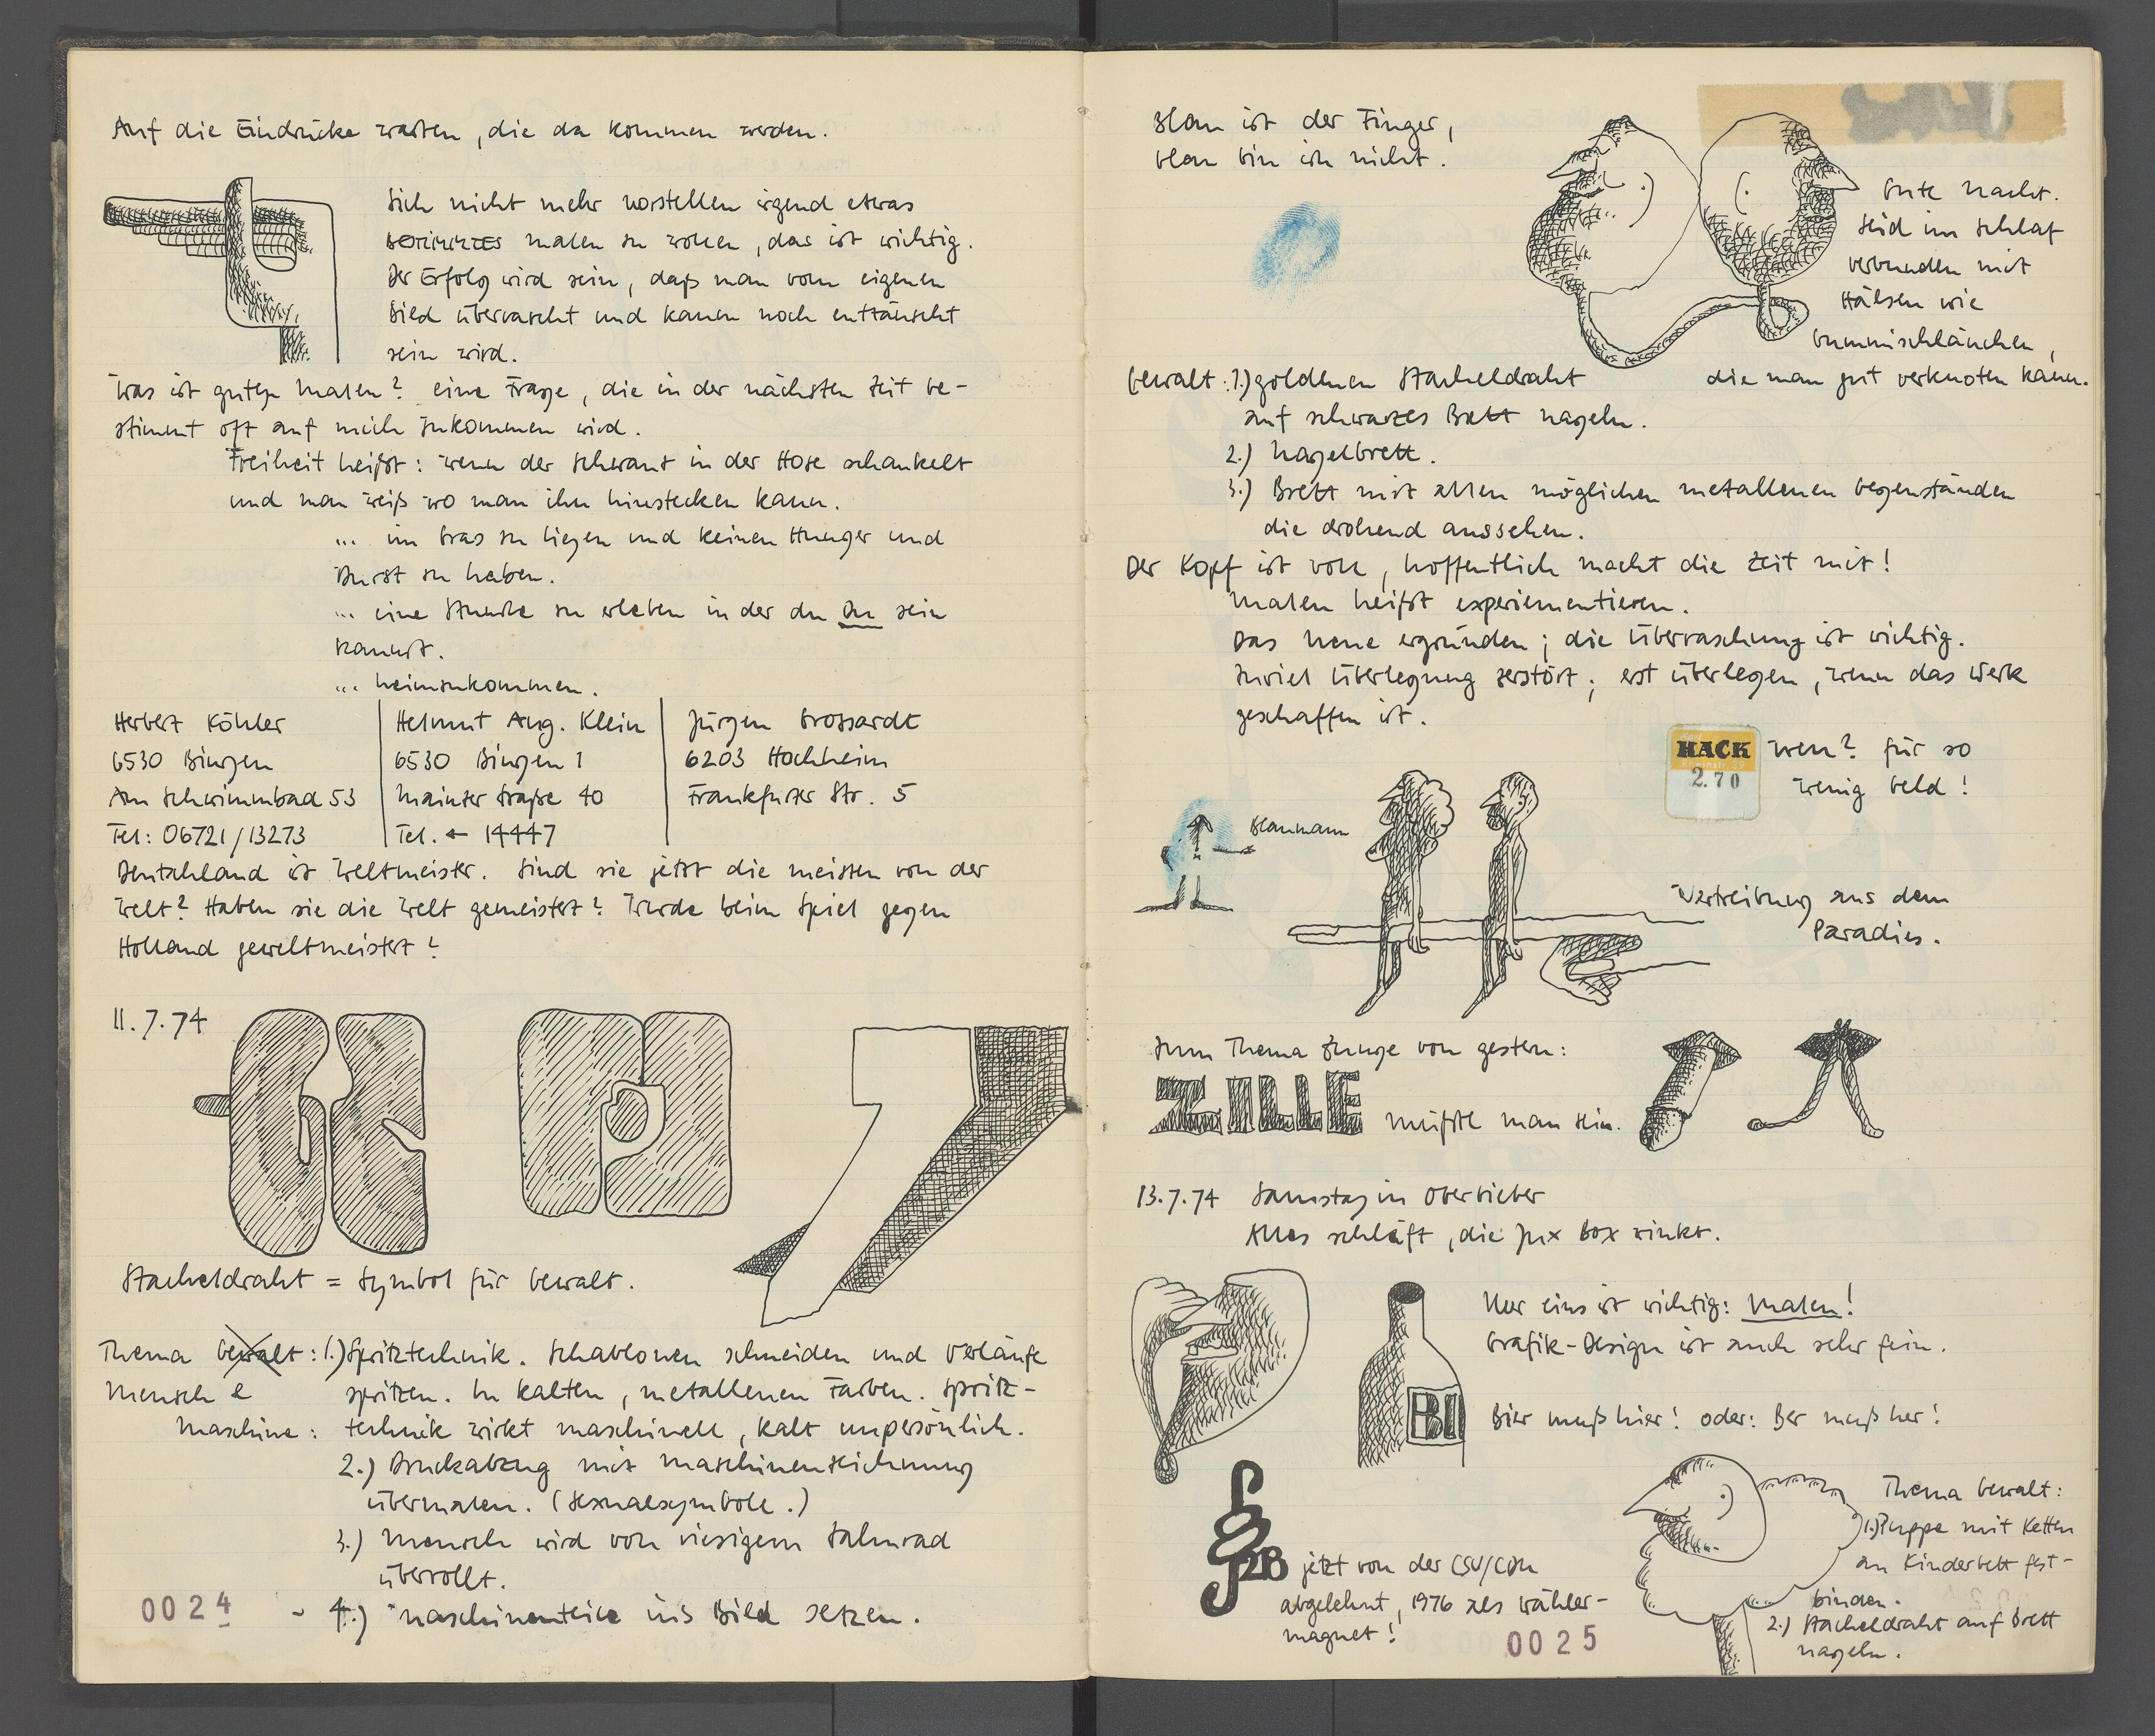 Auf die Eindrücke warten, die da kommen werden.
Sich nicht mehr vorstellen irgend etwas
BESTIMMTES malen zu wollen, das ist wichtig.
Der Erfolg wird sein, daß man vom eigenen
Bild überrascht und kaum noch enttäuscht
sein wird.
Was ist gutes Malen? eine Frage, die in der nächsten Zeit be-
stimmt oft auf mich zukommen wird.
Freiheit heißt: wenn der Schwanz in der Hose schaukelt
und man weiß wo man ihn hinstecken kann.
... im Gras zu liegen und keinen Hunger und
Durst zu haben.
... eine Stunde zu erleben in der du Du sein
kannst.
... heimzukommen.
Herbert Köhler
6530 Bingen
Am Schwimmbad 53
Tel: 06721/13273
Helmut Aug. Klein
6530 Bingen 1
Mainzer Straße 40
Tel. ← 14447
Jürgen Grossardt
6203 Hochheim
Frankfurter Str. 5
Deutschland ist Weltmeister. Sind sie jetzt die meisten von der
Welt? Haben sie die Welt gemeistert? Wurde beim Spiel gegen
Holland geweltmeistert?
11.7.74
Stacheldraht = Symbol für Gewalt.
Thema Gewalt: 1.) Spritztechnik. Schablonen schneiden und Verläufe
Mensch & spritzen. In kalten, metallenen Farben. Spritz-
Maschine: technik wirkt maschinell, kalt unpersönlich.
2.) Druckabzug mit Maschinenzeichnung
übermalen. (Sexualsymbole.)
3.) Mensch wird von riesigem Zahnrad
überrollt.
- 4.) Maschinenteile ins Bild setzen.
0024
Blau ist der Finger,
blau bin ich nicht.
Gute Nacht.
Seid im Schlaf
verbunden mit
Hälsen wie
Gummischläuchen,
die man gut verknoten kann.
Gewalt: 1.) goldenen Stacheldraht
auf schwarzes Brett nageln.
2.) Nagelbrett.
3.) Brett mit allen möglichen metallenen Gegenständen
die drohend aussehen.
Der Kopf ist voll, hoffentlich macht die Zeit mit!
Malen heißt experiementieren.
Das Neue ergründen; die Überraschung ist wichtig.
Zuviel Überlegung zerstört; erst überlegen, wenn das Werk
geschaffen ist.
HACK
2.70
wen? für so
wenig Geld!
Blaumann
Vertreibung aus dem
Paradies.
Zum Thema Zunge von gestern:
ZILLE müßte man sein.
13.7.74 Samstag in Oberbieber
Alles schläft, die Jux Box winkt.
Nur eins ist wichtig: Malen!
Grafik-Design ist auch sehr fein.
BI
Bier muß hier! oder: Ber muß her!
§ 218 jetzt von der CSU/CDU
abgelehnt, 1976 als Wähler-
magnet!
Thema Gewalt:
1.) Puppe mit Ketten
an Kinderbett fest-
binden.
2.) Stacheldraht auf Brett
nageln.
0025